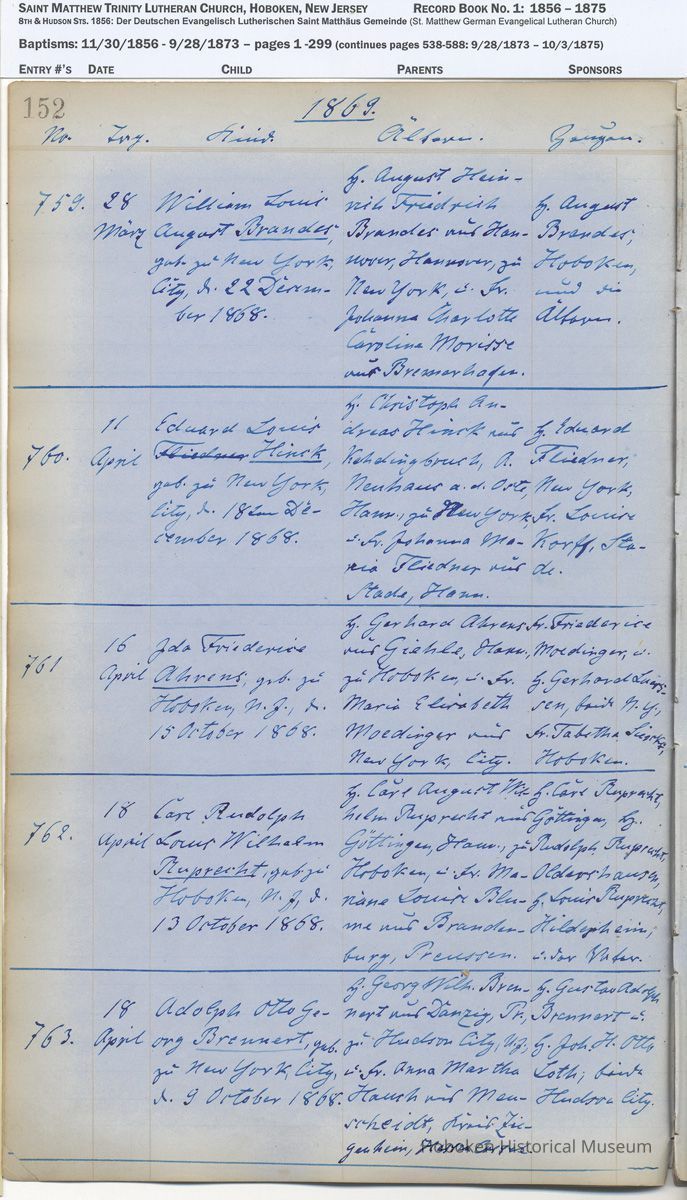 SAINT MATTHEW TRINITY LUTHERAN CHURCH, HOBOKEN, NEW JERSEY RECORD BOOK NO. 1: 1856 – 1875
8TH & HUDSON STS. 1856: DER DEUTSCHEN EVANGELISCH LUTHERISCHEN SAINT MATTHÄUS GEMEINDE (ST. MATTHEW GERMAN EVANGELICAL LUTHERAN CHURCH)
BAPTISMS: 11/30/1856 - 9/28/1873 – PAGES 1 -299 (CONTINUES PAGES 538-588: 9/28/1873 – 10/3/1875)
ENTRY #'S DATE CHILD PARENTS SPONSORS
152
1869.
No. Tag. Kind. Ältern. Zeugen.
759.
28
März
William Louis
August Brandes,
geb. zu New York,
City, d. 22 Decem-
ber 1868.
H. August Hein-
rich Friedrich
Brandes aus Han-
nover, Hannover, zu
New York, u. Fr.
Johanna Charlotte
Carolina Morisse
aus Bremerhafen.
H. August
Brandes,
Hoboken,
und die
Ältern.
760.
11
April
Eduard Louis
Fliedner Hinck,
geb. zu New York,
City, d. 18ten De-
cember 1868.
H. Christoph An-
dreas Hinck aus
Kehdingbruch, A.
Neuhaus a. d. Oste,
Hann., zu New York,
u. Fr. Johanna Ma-
ria Fliedner aus
Stade, Hann.
H. Eduard
Fliedner,
New York,
Fr. Louise
Korff, Sta-
de.
761
16
April
Ida Friederice
Ahrens, geb. zu
Hoboken, N. J., d.
15 October 1868.
H. Gerhard Ahrens
aus Giehle, Hann.,
zu Hoboken, u. Fr.
Maria Elisabeth
Moedinger aus
New York, City.
Fr. Friederice
Moedinger, u.
H. Gerhard
sen, beide N. Y.,
Fr. Tabitha
Hoboken.
762.
18
April
Carl Rudolph
Louis Wilhelm
Ruprecht, geb. zu
Hoboken, N. J., d.
13 October 1868.
H. Carl August Wil-
helm Ruprecht aus
Göttingen, Hann., zu
Hoboken, u. Fr. Ma-
riane Louise Blu-
me aus Branden-
burg, Preussen.
H. Carl Ruprecht,
Göttingen, H.
Rudolph Ruprecht,
Oldershausen,
H. Louis Ruprecht,
Hildesheim,
u. der Vater.
763.
18
April
Adolph Otto Ge-
org Brennert, geb.
zu New York City,
d. 9 October 1868.
H. Georg Wilh. Bren-
nert aus Danzig, Pr.,
zu Hudson City, N.J.,
u. Fr. Anna Martha
Hauch aus Men-
scheidt, Kreis Zie-
genhein,
H. Gustav Adolph
Brennert u.
H. Joh. H. Otto
Loth; beide
Hudson City.
Hoboken Historical Museum